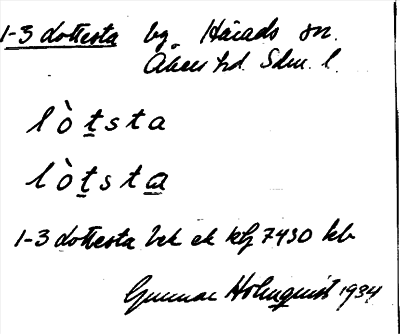 1-3 Lottersta bg. Härads sn.
Åkers hd. Sdm. l.
lòtsta
lòtsta
1-3 Lottersta bek ek kbj 7430 kb
Gunnar Holmquist 1934